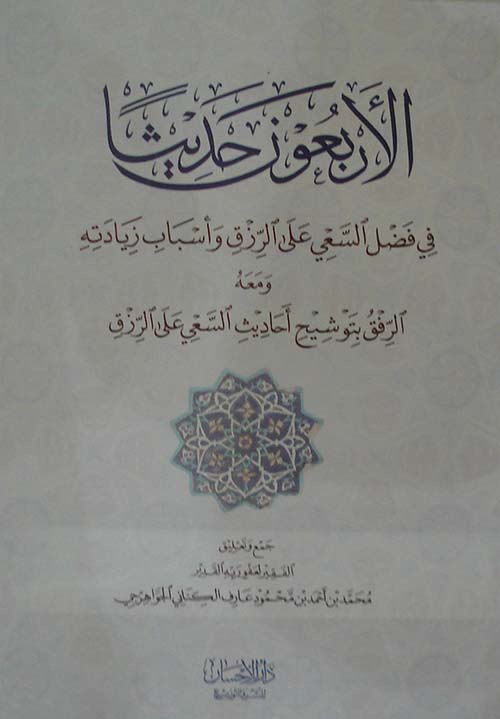 الأربعون حديثا
في فضل السعي على الرزق وأسباب زيادته
ومعه
الرفق بتوشيح أحاديث السعي على الرزق
جمع وتعليق
الفقير لعفو ربه القدير
محمد بن أحمد بن محمود عارف الكناني الجواهرجي
دار الإحسان
للنشر والتوزيع